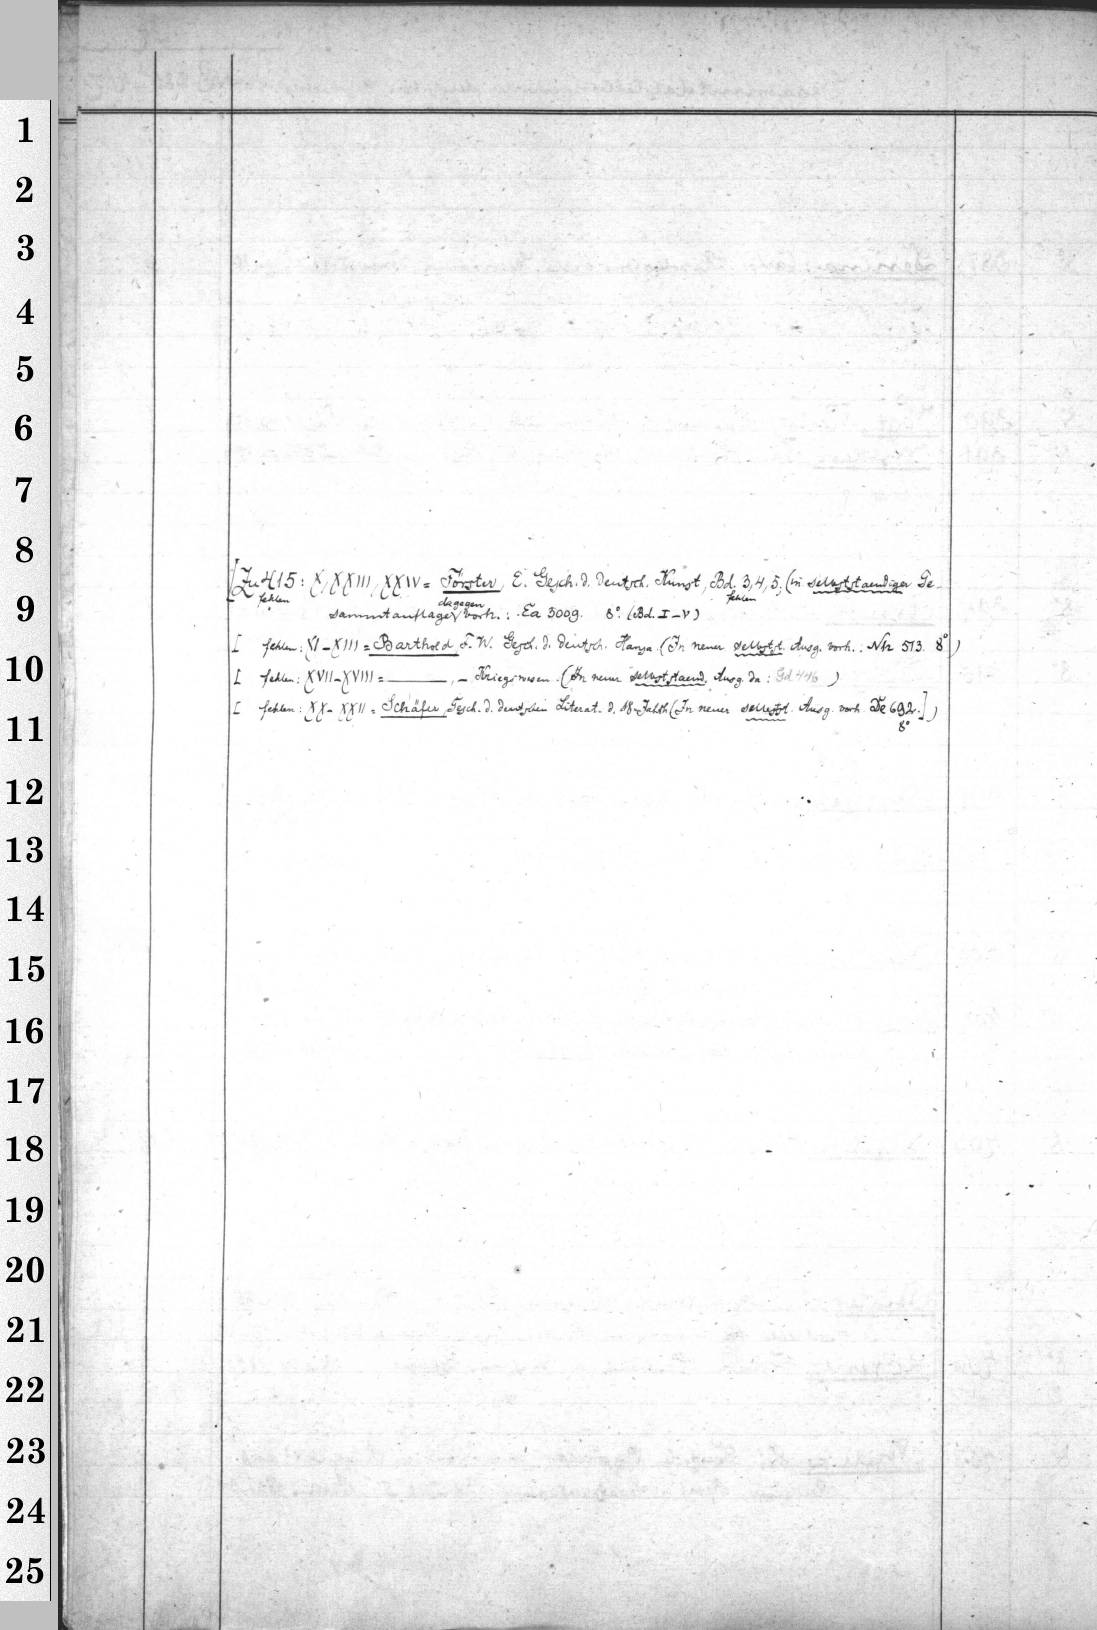 1
2
3
4
5
6
7
8
[Zu 415: X, XXIII, XXIV = Förster, E. Gesch. d. deutsch. Kunst, Bd. 3, 4, 5, (in selbststaendiger Ge-
fehlen fehlen
9
dagegen
sammtauflage vorh.: Ea 3009. 8° (Bd. I-V)
[ fehlen: XI-XIII = Barthold F. W. Gesch. d. deutsch. Hansa. (In neuer selbstst. Ausg. vorh.: Nh 513. 8°)
10
[ fehlen: XVII-XVIII = ———, - Kriegswesen. (In neuer selbststaend. Ausg. da: Gd 446 )
[ fehlen: XX-XXII = Schäfer, Gesch. d. deutschen Literat. d. 18 Jahrh (In neuer selbstst. Ausg. vorh. De 692.])
8°
11
12
13
14
15
16
17
18
19
20
21
22
23
24
25